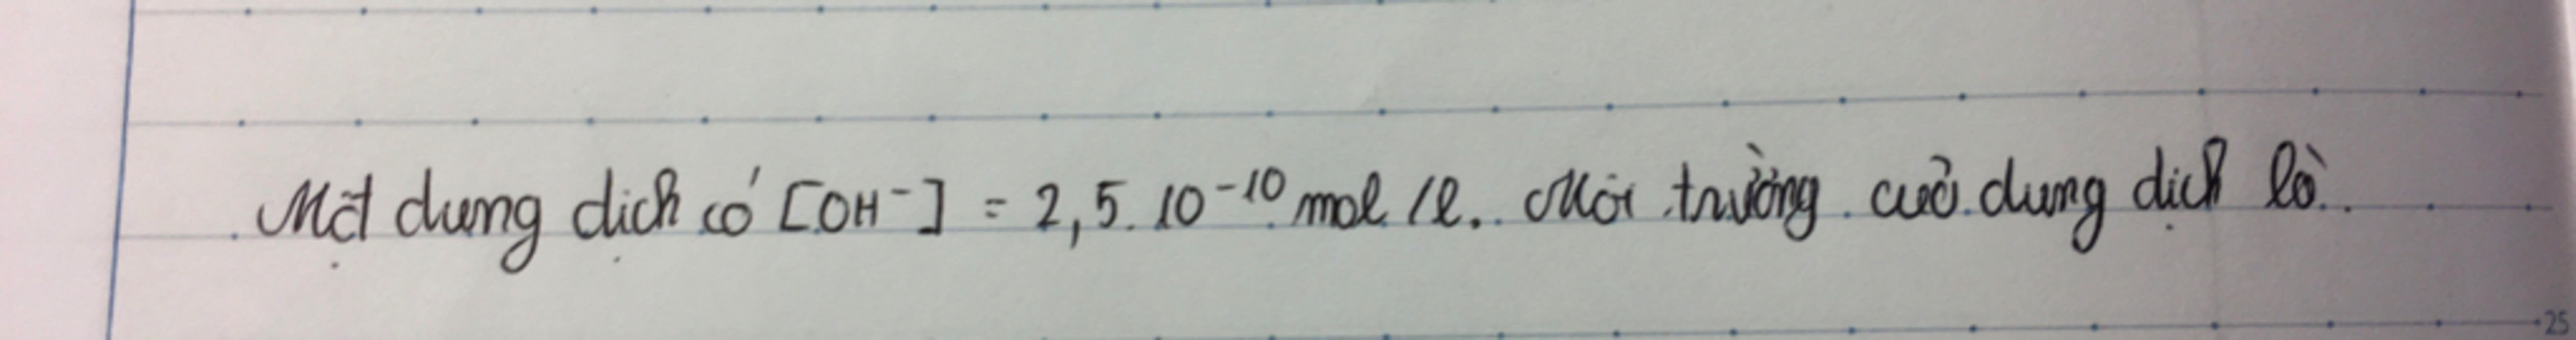 Một dung dịch có [OH⁻] = 2,5. 10⁻¹⁰ mol /l. Môi trường của dung dịch là
25